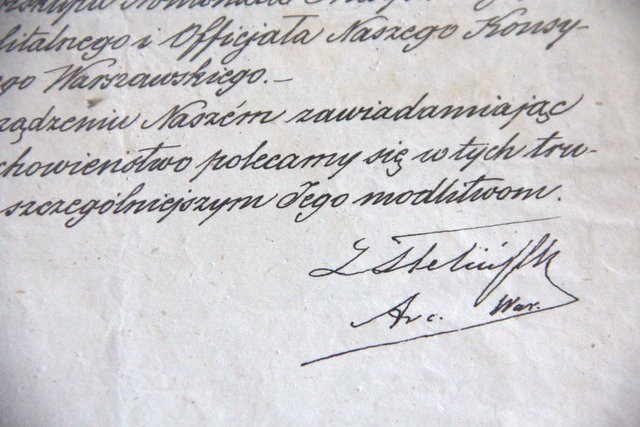 Nominata
litalnego i Officjała Naszego Konsy-
go Warszawskiego.—
rządzeniu Naszém zawiadamiając
chowieństwo polecamy się w tych tru-
szczególniejszym Jego modlitwom.
Z S Feliński
Arc. War.